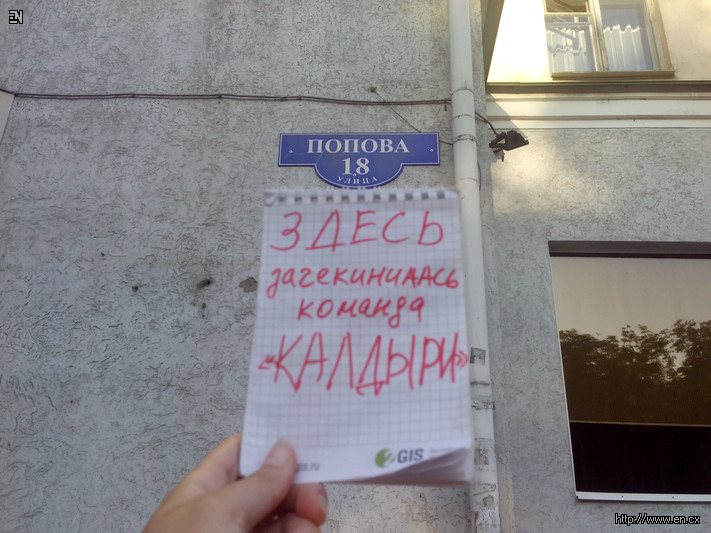 EN
ПОПОВА
18
УЛИЦА
ЗДЕСЬ
зачекинилась
команда
«КАЛДЫРИ»
GIS
http://www.en.cx